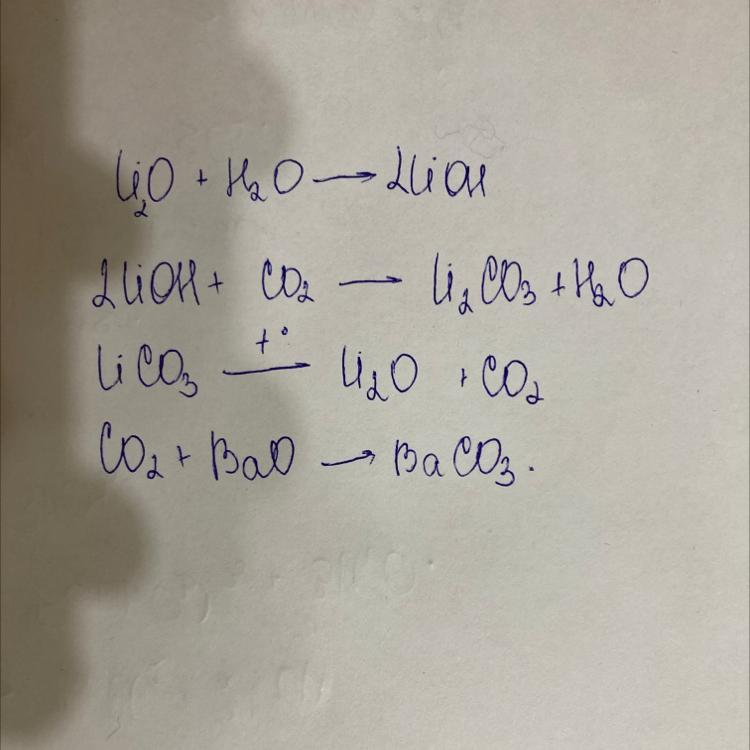 Li₂O + H₂O → 2LiOH
2LiOH + CO₂ → Li₂CO₃ + H₂O
LiCO₃ —t°— Li₂O + CO₂
CO₂ + BaO → BaCO₃.